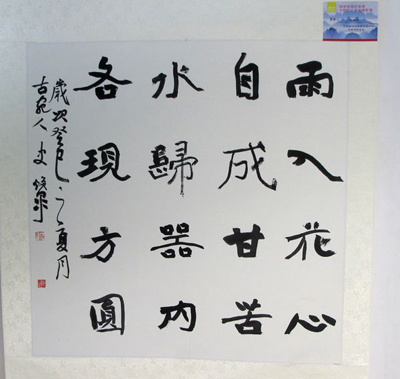 雨入花心
自成甘苦
水歸器内
各現方圓
歲次癸巳之夏月
古宛人史